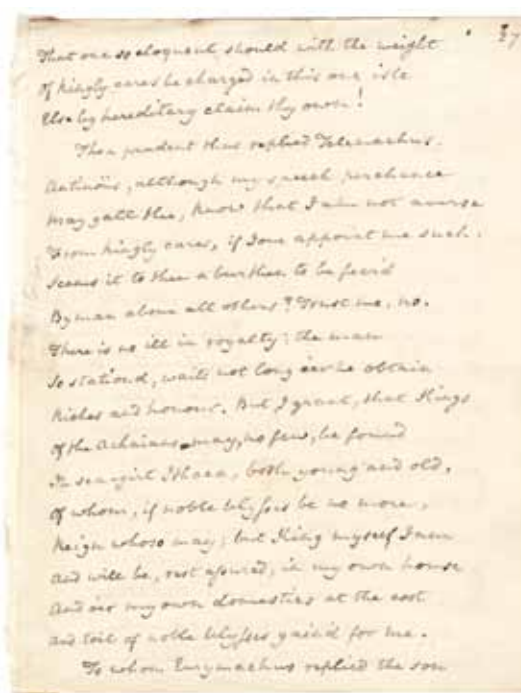 37
That one so eloquent should with the weight
Of kingly cares be charged in this our isle
Else by hereditary claim thy own!
Then prudent thus replied Telemachus.
Antinoüs, although my speech perchance
May gall thee, know that I am not averse
From kingly cares, if Jove appoint me such.
Seems it to thee a burthen to be fear'd
By man above all others? Trust me, no.
There is no ill in royalty; the man
So station'd, waits not long e'er he obtain
Riches and honour. But I grant, that Kings
Of the Achaians may, no few, be found
In sea-girt Ithaca, both young and old,
Of whom, if noble Ulysses be no more,
Reign whoso may; but King myself I am
And will be, rest assured, in my own house
And o'er my own domestics at the cost
And toil of noble Ulysses gain'd for me.
To whom Eurymachus replied the son